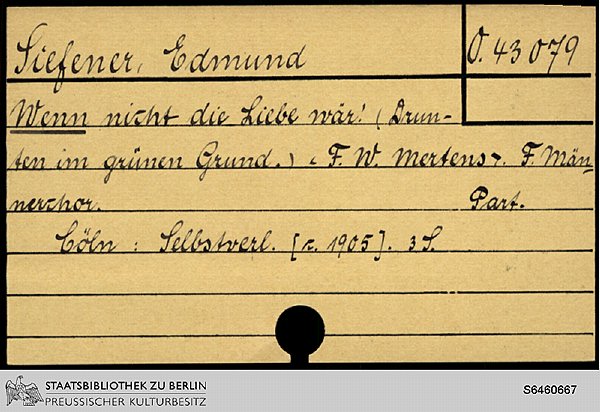 Siefener, Edmund
O. 43079
Wenn nicht die Liebe wär! (Drun-
ten im grünen Grund.) < F. W. Mertens >. F. Män-
nerchor. Part.
Cöln : Selbstverl. [c. 1905]. 3 S.
STAATSBIBLIOTHEK ZU BERLIN
PREUSSISCHER KULTURBESITZ
S6460667